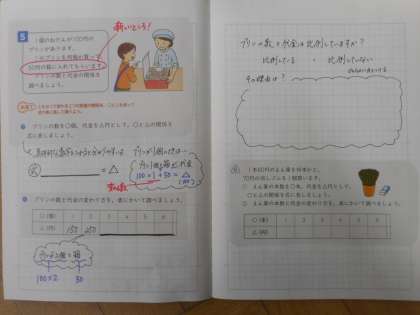 5
1個のねだんが100円の
プリンがあります。
このプリンを何個か買って、
50円の箱に入れてもらいます。
プリンの数と代金の関係を
調べましょう。
新しいところ!
1 プリンの数を○個、代金を△円として、○と△の関係を
式に表しましょう。
式
= △
プリンが1個の時は…
プリン1個と箱=代金
100×1+50=△
(150)
2 プリンの数と代金の変わり方を、表にかいて調べましょう。
○(個) 1 2 3 4 5 6
△(円) 150 250
プリン2個と箱
100×2 50
プリンの数と代金は比例していますか?
比例している ・ 比例していない
その理由は?
1本60円のえん筆を何本かと、
70円の消しゴムを1個買います。
① えん筆の本数を○本、代金を△円として、
○と△の関係を式に表しましょう。
② えん筆の本数と代金の変わり方を、表にかいて調べましょう。
○(本) 1 2 3 4 5 6
△(円)